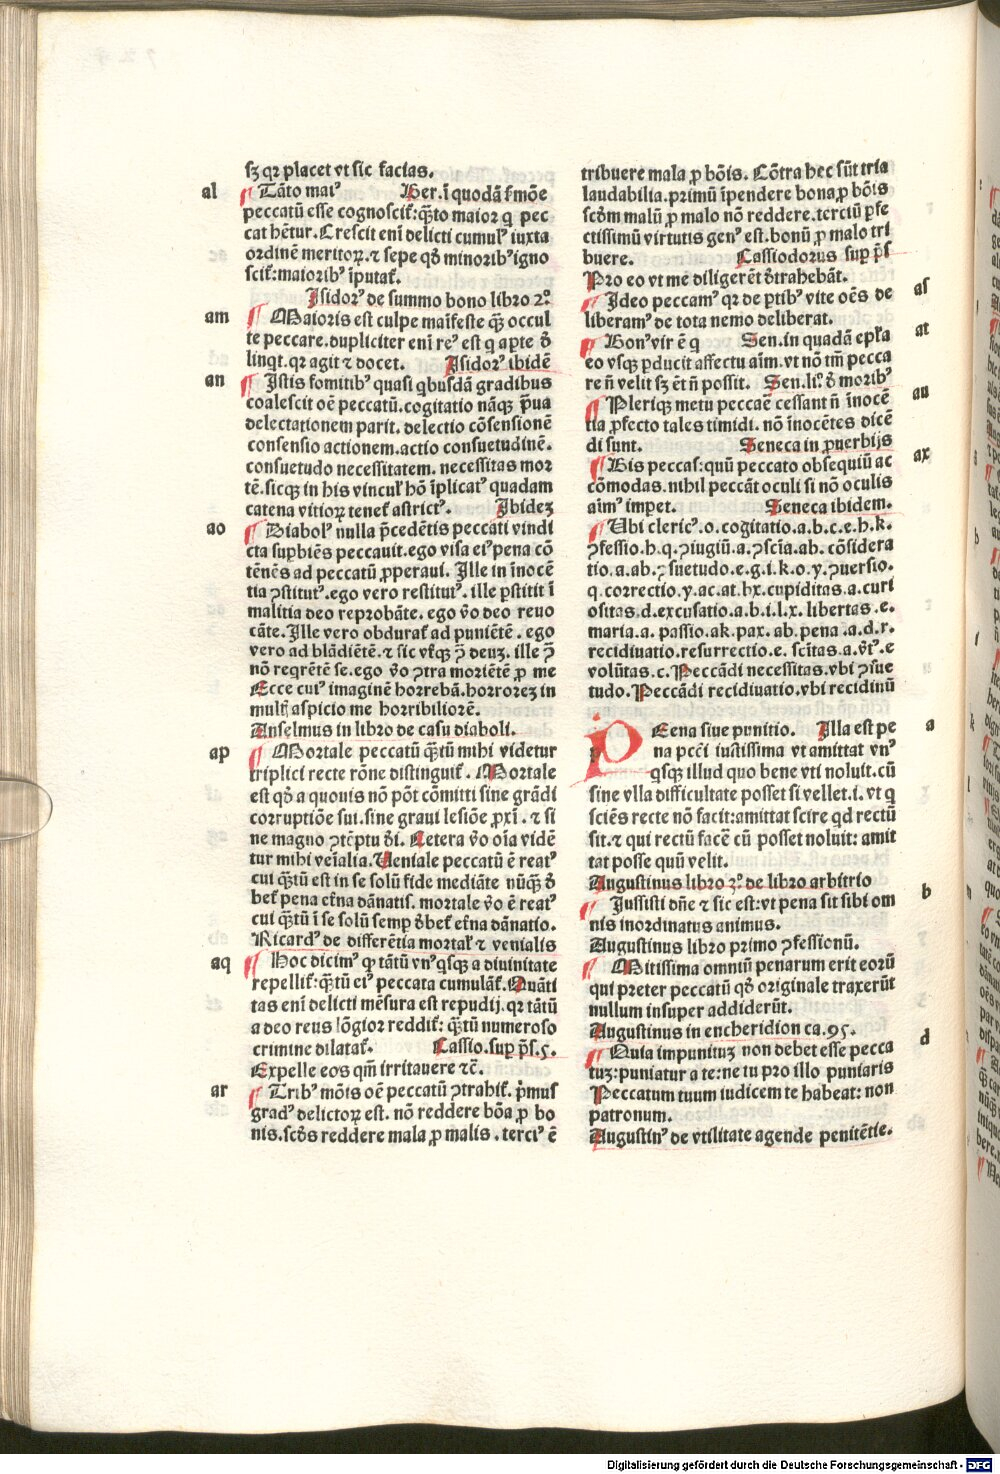 sꝫ qꝛ placet vt sic facias.
al
Tāto maiꝰ Ber.ī quodā ẜmōe
peccatū esse cognoscit᷑:q̄ꝫto maior q pec
cat hētur.Crescit eni delicti cumulꝰ iuxta
ordinē meritoꝝ.⁊ sepe qđ minoribꝰigno
scit᷑:maioribꝰ īputat᷑.
Isidorꝰ de summo bono libro 2º.
am
Maioris est culpe māifeste q̄ꝫ occul
te peccare.dupliciter eni reꝰ est q apte đ
linqt.qꝛ agit ⁊ docet. Isidorꝰ ibidē
an
Istis fomitibꝰ quasi qbusdā gradibus
coalescit oē peccatū.cogitatio nāqꝫ p̄ua
delectationem parit.delectio cōsensionē
consensio actionem.actio consuetudinē.
consuetudo necessitatem.necessitas mor
tē.sicqꝫ in his vinculꝭ hō īplicatꝰ quadam
catena vitioꝝ tenet᷑ astrictꝰ. Ibideꝫ
ao
Diabolꝰ nulla p̄cedētis peccati vindi
cta supbiēs peccauit.ego visa eiꝰ pena cō
tēnēs ad peccatū ꝓperaui. Ille in īnocē
tia ꝯstitutꝰ.ego vero restitutꝰ. ille pstitit ī
malitia deo reprobāte. ego v̄o deo reuo
cāte.Ille vero obdurat᷑ ad puniētē . ego
vero ad blādiētē.⁊ sic vt᷑qꝫ ꝯ̄ deuꝫ. ille ꝯ̄
nō reqrētē se.ego v̄o ꝯtra moriētē ꝓ me
Ecce cuiꝰ imaginē horrebā.horroreꝫ in
mulꝭ aspicio me horribiliorē.
Anselmus in libro de casu diaboli.
ap
Mortale peccatū q̄ꝫtū mihi videtur
triplici recte rōne distinguit᷑. Mortale
est qđ a quouis nō pōt cōmitti sine grādi
corruptiōe sui.sine graui lesiōe ꝓxi . ⁊ si
ne magno ꝯtēptu đi. Cetera v̄o oīa vidē
tur mihi veīalia.Ueniale peccatū ē reatꝰ
cui q̄ꝫtū est in se solū fide mediāte nūqꝫ đ
bet᷑ pena et᷑na dānatis. mortale v̄o ē reatꝰ
cui q̄ꝫtū ī se solū semp đbet᷑ et᷑na dānatio.
Ricardꝰ de differētia mortaꝉ ⁊ venialis
aq
Hoc dicimꝰ ꝙ tātū vnꝰqsqꝫ a diuinitate
repellit᷑:q̄ꝫtū eiꝰ peccata cumulāt᷑.Quāti
tas eni delicti mēsura est repudij.qꝛ tātū
a deo reus lōgior reddit᷑: q̄ꝫtū numeroso
crimine dilatat᷑. Cassio.suꝑ p̄s.5.
Expelle eos qm̄ irritauere ⁊c̄.
ar
Tribꝰ mōis oē peccatū ꝯtrahit᷑. p̄mus
gradꝰ delictoꝝ est. nō reddere bōa ꝓ bo
nis.scđs reddere mala ꝓ malis . terciꝰ ē
tribuere mala ꝓ bōis. Cōtra hec sūt tria
laudabilia.primū īpendere bona ꝓ bōis
scđm malū ꝓ malo nō reddere.terciū ꝑfe
ctissimū virtutis genꝰ est.bonū ꝓ malo tri
buere. Cassiodorus suꝑ p̄s
Pro eo vt me diligerēt đtrahebāt.
as
Ideo peccamꝰ qꝛ de ꝑtibꝰ vite oēs de
liberamꝰ de tota nemo deliberat.
at
Bonꝰ vir ē q Sen.in quadā epꝉa
eo vsqꝫ ꝑducit affectu aīm.vt nō tm̄ pecca
re n̄ velit sꝫ ēt n̄ possit. Sen.li.º đ moribꝰ
au
Pleriqꝫ metu peccaē cessant n̄ īnocē
tia ꝓfecto tales timidi. nō īnocētes dicē
di sunt. Seneca in ꝓuerbijs
ax
Bis peccas:quū peccato obsequiū ac
cōmodas.nihil peccāt oculi si nō oculis
aīmꝰ impet. Seneca ibidem.
Ubi clericꝰ.o.cogitatio.a.b.c.e.h.k.
ꝯfessio.h.q.ꝯiugiū.a.ꝯscīa.ab. cōsidera
tio.a.ab.ꝯsuetudo.e.g.i.k.o.y.ꝯuersio.
q.correctio.y.ac.at.bx.cupiditas.a.curi
ositas.d.excusatio.a.b.i.l.x. libertas .e.
maria.a. passio.ak.pax. ab.pena .a.d.r.
recidiuatio.resurrectio.e. scītas.a.v̄tꝰ.e
volūtas.c.Peccādi necessitas.vbi ꝯsue
tudo.Peccādi recidiuatio.vbi recidinū
a
PEena siue punitio. Illa est pe
na pcci iustissima vt amittat vnꝰ
qsqꝫ illud quo bene vti noluit.cū
sine vlla difficultate posset si vellet.i.vt q
sciēs recte nō facit:amittat scire qd rectū
sit.⁊ qui rectū facē cū posset noluit: amit
tat posse quū velit.
Augustinus libro 3º. de libro arbitrio
b
Jussisti dn̄e ⁊ sic est:vt pena sit sibi om
nis inordinatus animus.
Augustinus libro primo ꝯfessionū.
Mitissima omniū penarum erit eorū
qui preter peccatū qđ originale traxerūt
nullum insuper addiderūt.
Augustinus in encheridion ca.95.
d
Quia impunituꝫ non debet esse pecca
tuꝫ:puniatur a te:ne tu pro illo puniaris
Peccatum tuum iudicem te habeat: non
patronum.
Augustinꝰ de vtilitate agende penitētie.
Digitalisierung gefördert durch die Deutsche Forschungsgemeinschaft - DFG